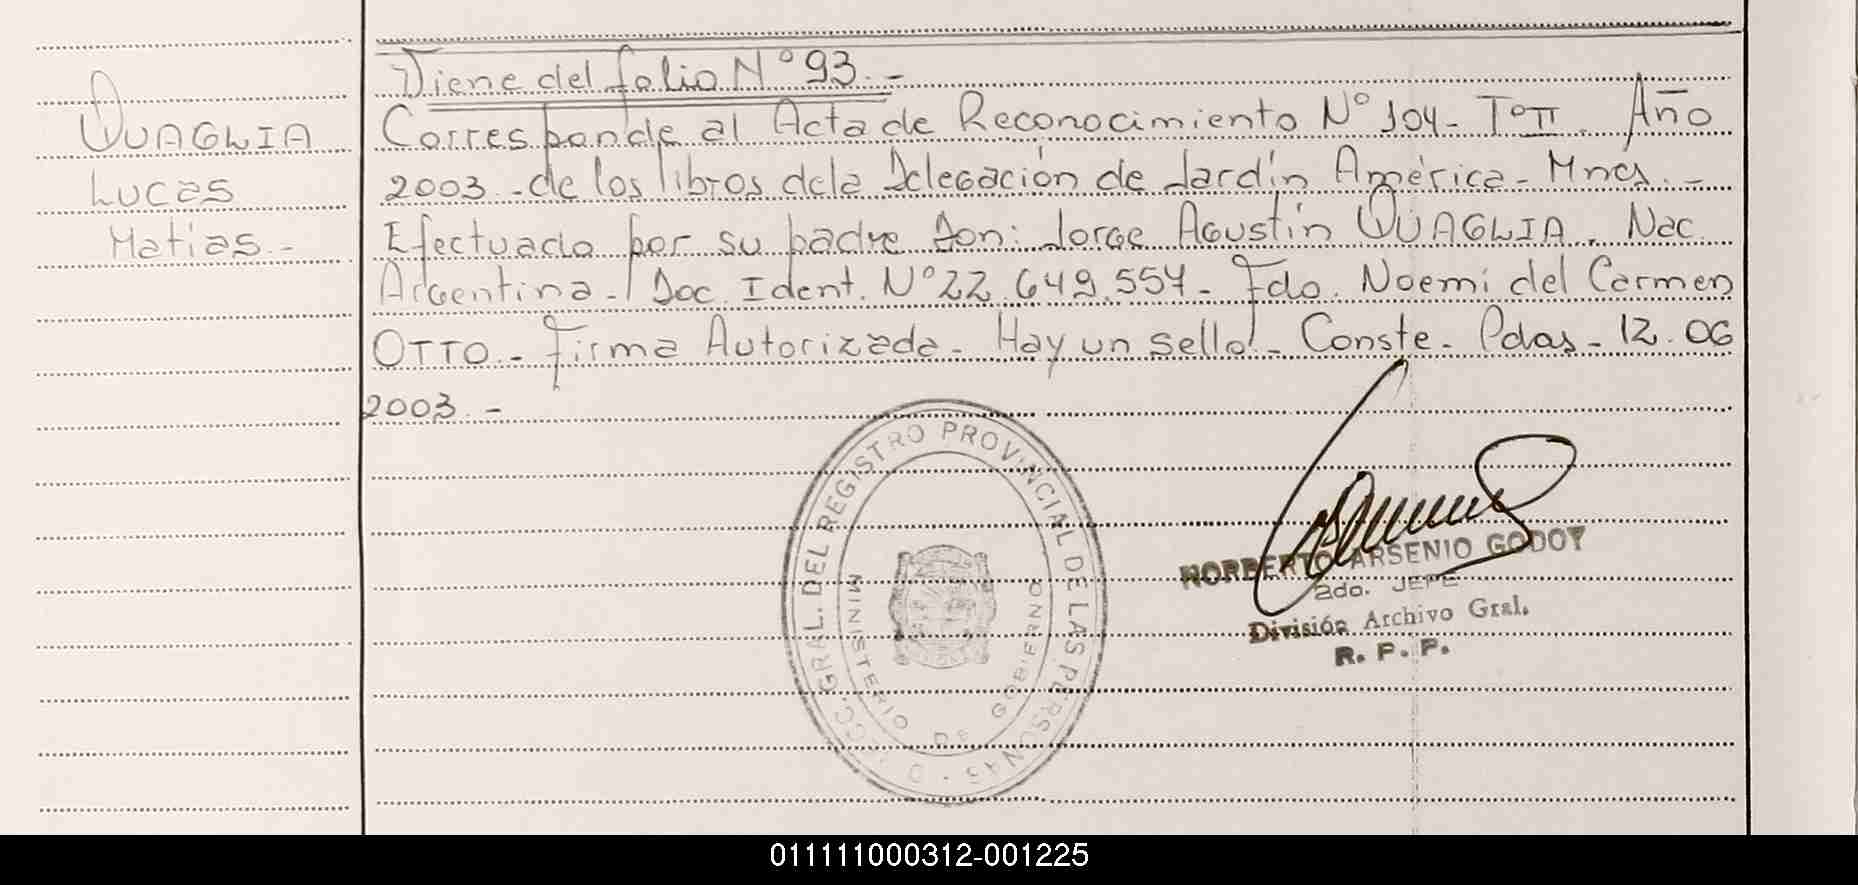 Viene del folio N° 93.-
QUAGLIA
Corresponde al Acta de Reconocimiento N° 104- T° II. Año
Lucas
2003.- de los libros de la Delegación de Jardín América- Mnes.-
Matias.-
Efectuado por su padre Don: Jorge Agustín QUAGLIA. Nac.
Argentina-/ Doc. Ident. N° 22.649.557- Fdo. Noemí del Carmen
OTTO.- Firma Autorizada- Hay un sello!- Conste- Pdas- 12.06
2003.-
D CC. GRAL. DEL REGISTRO PROVINCIAL DE LAS PERSONAS
MINISTERIO DE GOBIERNO
NORBERTO ARSENIO GODOY
2do. JEFE
División Archivo Gral.
R. P. P.
011111000312-001225